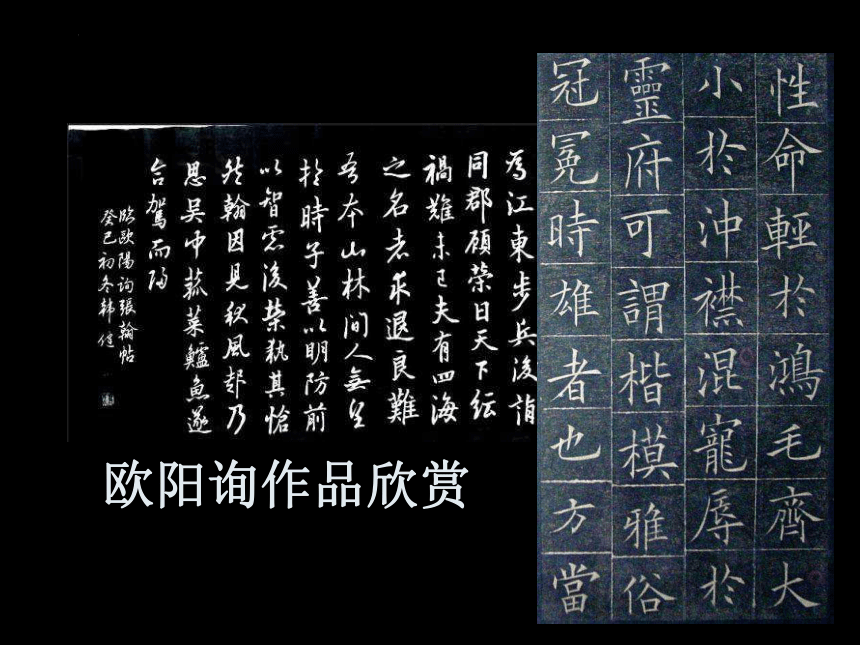 性命輕於鴻毛齊大
小於沖襟混寵辱於
靈府可謂楷模雅俗
冠冕時雄者也方當
為江東步兵後詣
同郡顧榮曰天下紜
禍難未已夫有四海
之名者求退良難
吾本山林間人無望
於時子善以明防前
以智慮後榮執其愴
然翰因見秋風起乃
思吳中菰菜鱸魚遂
命駕而歸
臨歐陽詢張翰帖
癸巳初冬韩
欧阳询作品欣赏